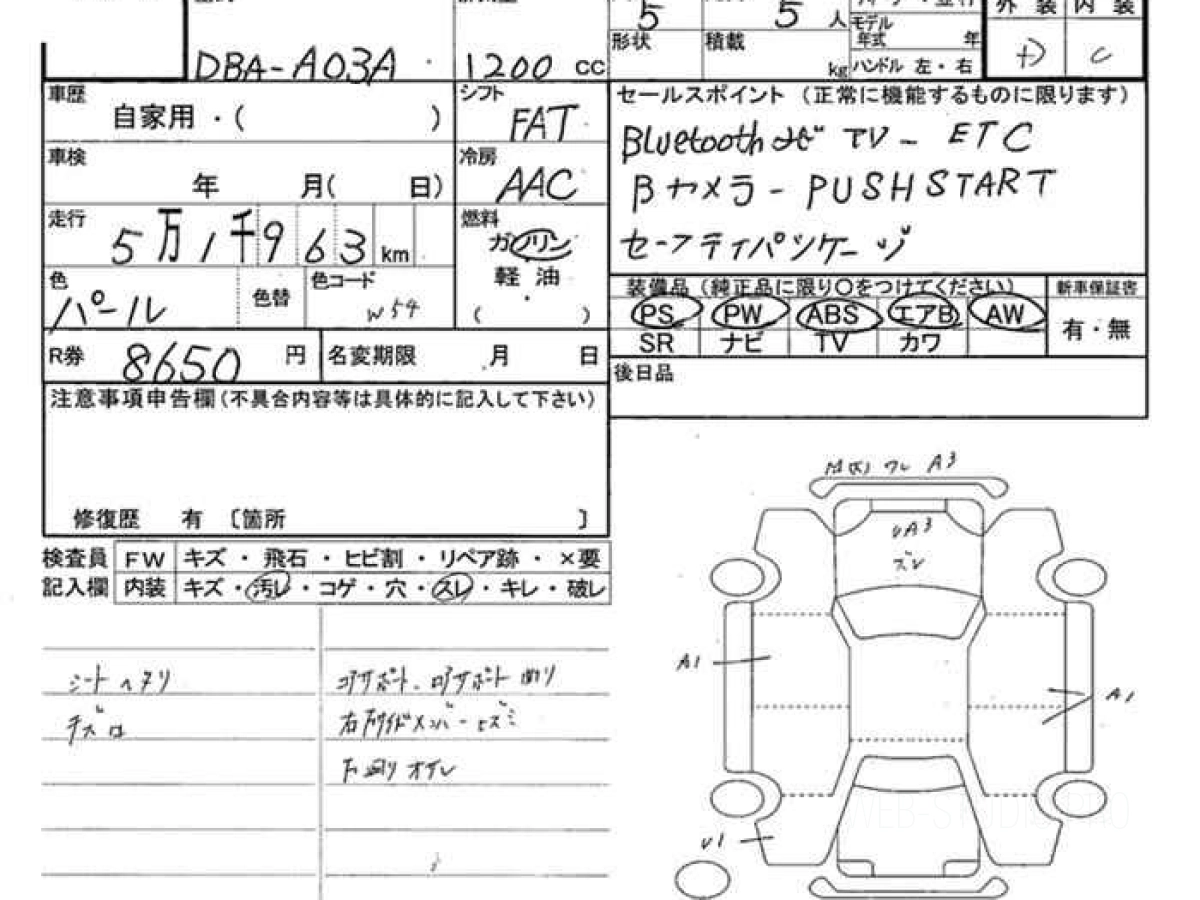 5 5 人 外装 内装
モデル
DBA-A03A 1200 cc 形状 積載 kg 年式 年 ハンドル 左・右 D C
車歴 自家用・( ) シフト FAT
セールスポイント (正常に機能するものに限ります)
Bluetooth ナビ TV - ETC
車検 年 月( 日) 冷房 AAC
Bカメラ - PUSHSTART
走行 5万1千963 km 燃料 ガソリン
セーフティパッケージ
軽油
( )
色 パール 色替 色コード W54
装備品 (純正品に限り○をつけてください) 新車保証書
PS PW ABS エアB AW 有・無
SR ナビ TV カワ
R券 8650 円 名変期限 月 日
後日品
注意事項申告欄(不具合内容等は具体的に記入して下さい)
修復歴 有 〔箇所 〕
検査員 FW キズ・飛石・ヒビ割・リペア跡・×要
記入欄 内装 キズ・汚レ・コゲ・穴・スレ・キレ・破レ
シートヘタリ コアサポート、ロアサポート 曲り
右Fサイドメンバーヒズミ
下廻り オデレ
A3
UA3
ズレ
A1
A1
U1
WEB-STUDIO.PRO